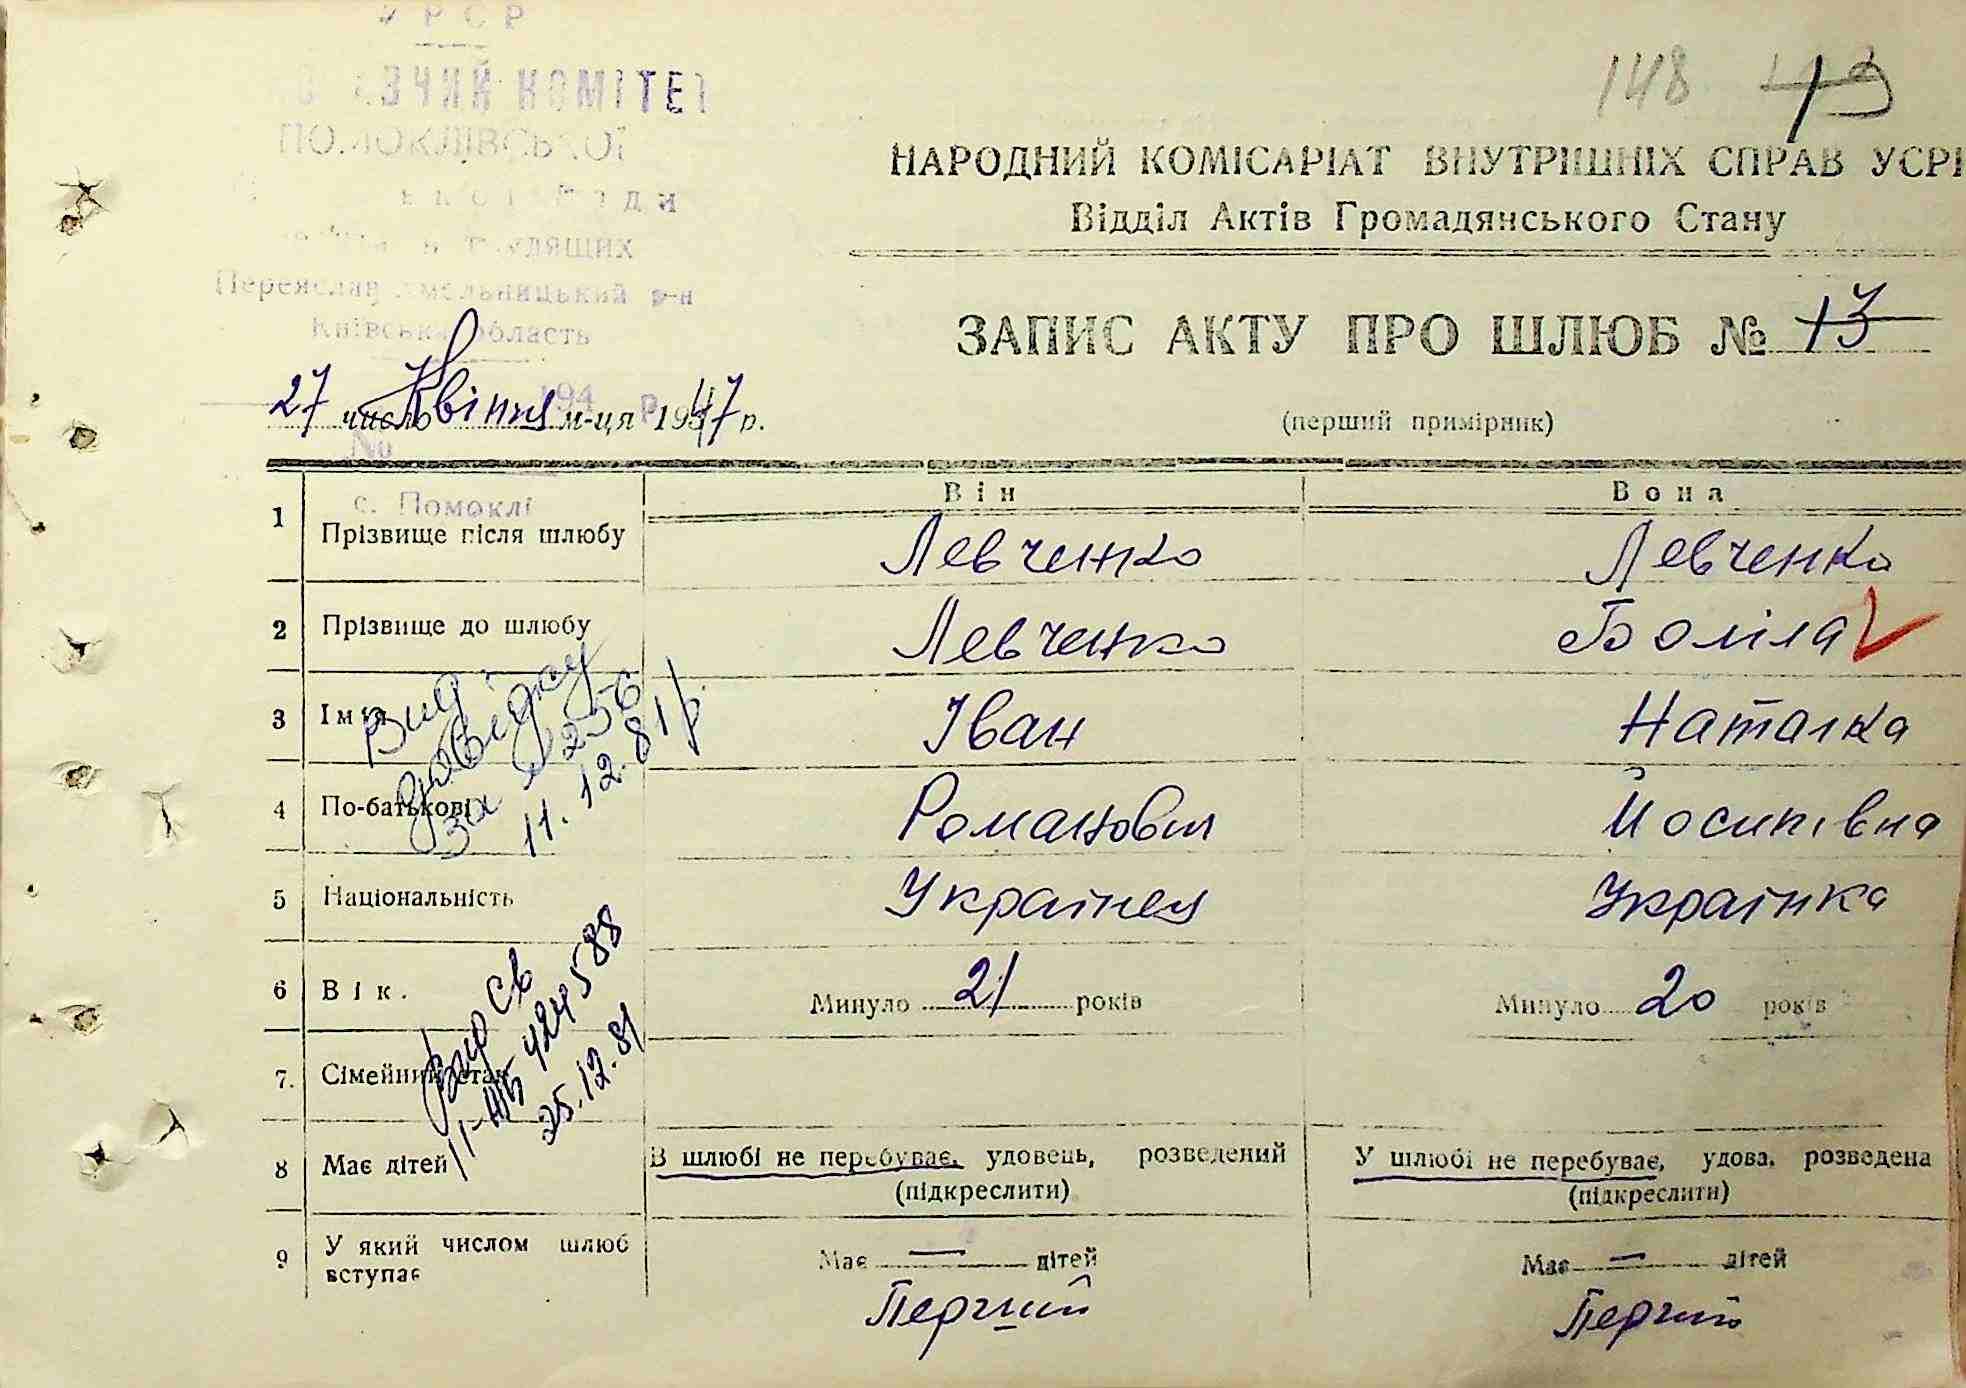 УРСР
КОМІТЕТ
ПОМОКЛІВСЬКОЇ
трудящих
Переяслав Хмельницький р-н
Київська область
194 р.
№
с. Помоклі
148 43
НАРОДНИЙ КОМІСАРІАТ ВНУТРІШНІХ СПРАВ УСРР
Відділ Актів Громадянського Стану
ЗАПИС АКТУ ПРО ШЛЮБ № 13
27 число Квітня м-ця 1947 р.
(перший примірник)
Він Вона
1 Прізвище після шлюбу Левченко Левченко
2 Прізвище до шлюбу Левченко Боліла
3 Ім'я Іван Наталка
4 По-батькові Романович Йосипівна
5 Національність Українец Українка
6 Вік. Минуло 21 років Минуло 20 років
7. Сімейний стан
8 Має дітей В шлюбі не перебуває, удовець, розведений У шлюбі не перебуває, удова, розведена
(підкреслити) (підкреслити)
9 У який числом шлюб вступає Має — дітей Має — дітей
Перший Перший
Вид. довідку
за № 256
11.12.81 р.
Вид св
424588
25.12.81